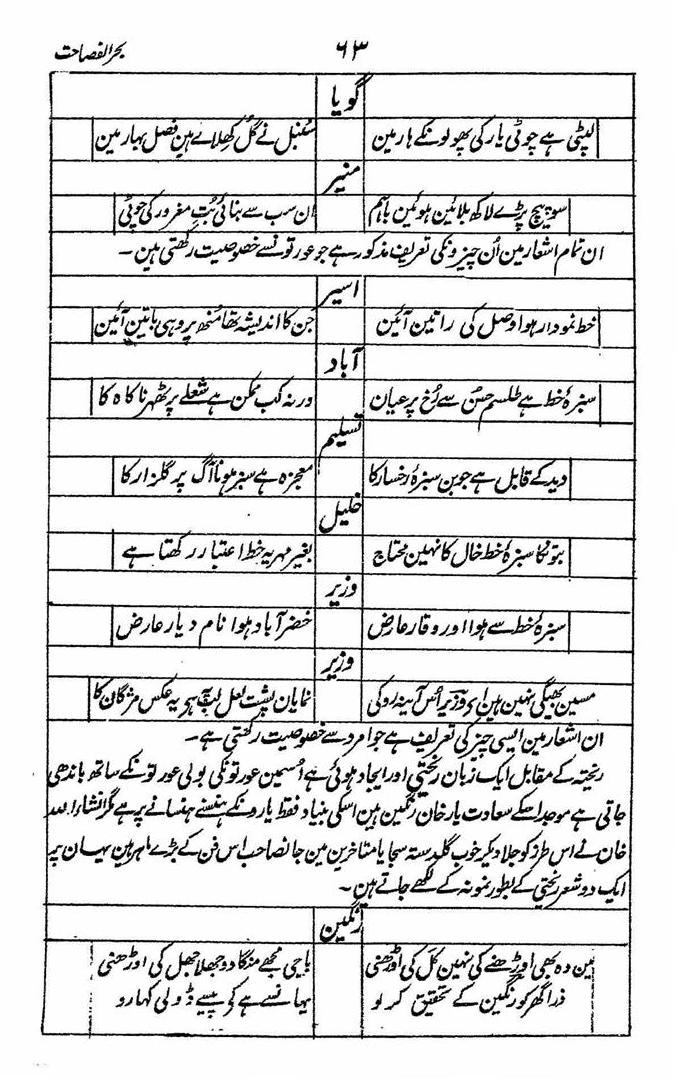 بحر الفصاحت
۶۳
گویا
لپٹی ہے چوٹی یار کی پھولونکے ہارمین سنبل نے گل کھلاے ہین فصل بہار مین
منیر
سو پیچ پڑے لاکھ بلائین ہوئین باہم ان سب سے بنائی بُتِ مغرور کی چوٹی
ان تمام اشعار مین اُن چیزونکی تعریف مذکور ہے جو عورتونسے خصوصیت رکھتی ہین ۔
اسیر
خط نمودار ہوا وصل کی راتین آئین جن کا اندیشہ تھا منھ پر وہی باتین آئین
آباد
سبزۂ خط ہے طلسم حسن سے رُخ پر عیان ورنہ کب ممکن ہے شعلے پر ٹھہرنا کاہ کا
تسلیم
دید کے قابل ہے جوبن سبزۂ رخسار کا معجزہ ہے سبز ہونا آگ پر گلزار کا
خلیل
بتونکا سبزۂ خط خال کا نہین محتاج بغیر مہر یہ خط اعتبار رکھتا ہے
وزیر
سبزۂ خط سے ہوا اور وقار عارض خضر آباد ہوا نام دیار عارض
وزیر
مسین بھیگی نہین ہین ای وزیر اُس آئینہ رو کی نمایان پشت لعل لب پہ ہے یہ عکس مژگان کا
ان اشعار مین ایسی چیز کی تعریف ہے جو امرد سے خصوصیت رکھتی ہے ۔
ریختہ کے مقابل ایک زبان ریختی اور ایجاد ہوئی ہے اُسمین عورتونکی بولی عورتونکے ساتھ باندھی
جاتی ہے موجد اسکے سعادت یار خان رنگین ہین اسکی بنیاد فقط یارونکے ہنسنے ہنسانے پر ہے مگر انشاء اللہ
خان نے اس طرز کو جلا دیکر خوب گلدستہ سجایا متاخرین مین جانصاحب اس فن کے بڑے ماہر ہین یہان پر
ایک دو شعر ریختی کے بطور نمونہ کے لکھے جاتے ہین ۔
رنگین
مین وہ بھی اوڑھنے کی نہین کل کی اوڑھنی باجی مجھے منگا دو جھلا جھل کی اوڑھنی
ذرا گھر کو رنگین کے تحقیق کر لو یہانسے ہے کے پیسے ڈولی کہارو